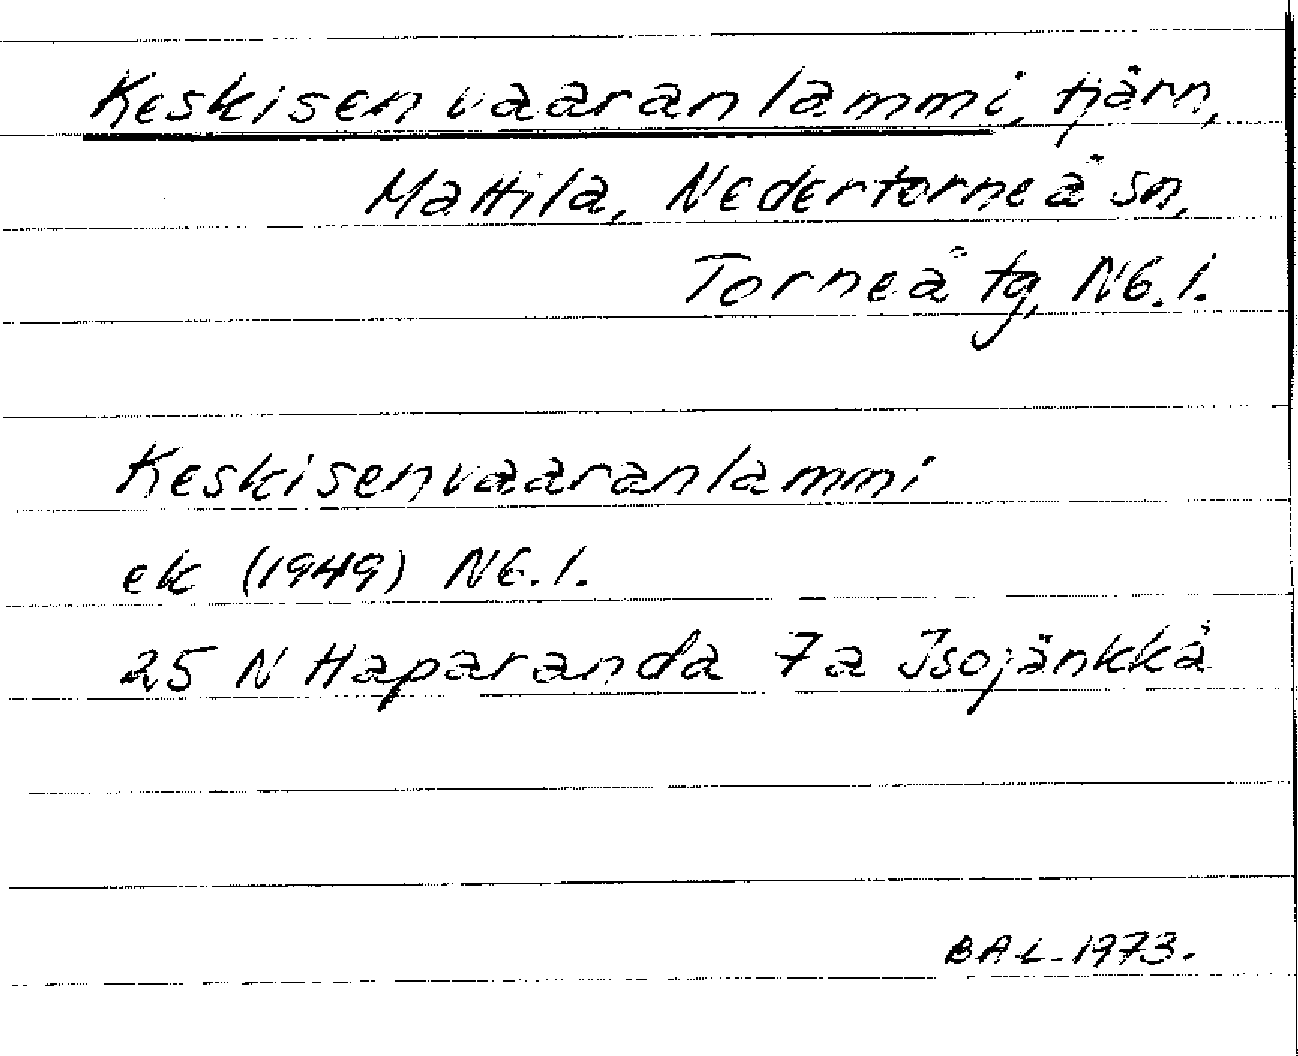 Keskisenvaaranlammi, tjärn,
Mattila, Nedertorneå sn,
Torneå tg, NB.l.
Keskisenvaaranlammi
ek (1949) NB.l.
25 N Haparanda 7a Isojänkkä
BAL-1973.